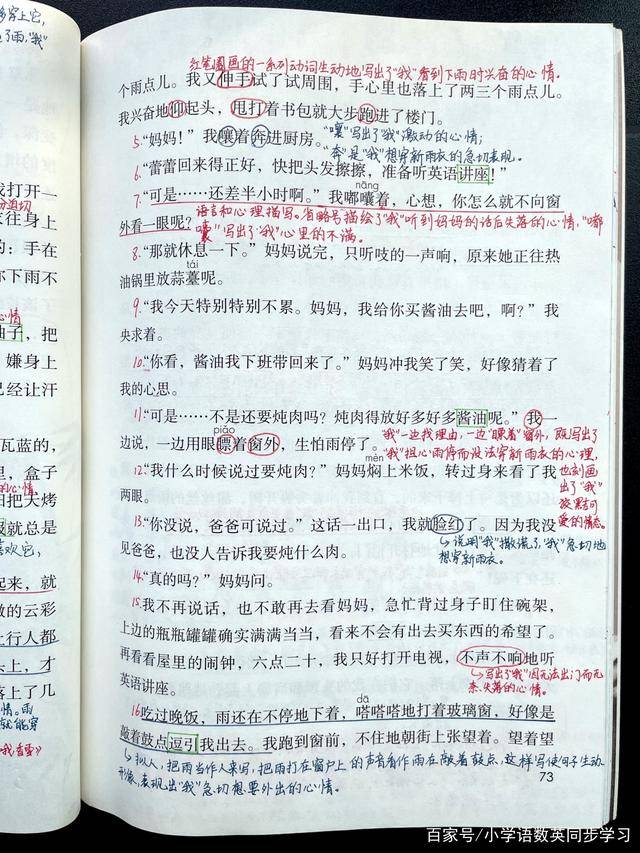 多穿上它，
了雨，“我”
我打开一
分迫切
往身上
的：手在
你下雨不
心情
油子，把
嫌身上
已经让汗
瓦蓝的，
里，盒子
的心情
把大烤
就总是
喜欢它，
起来，就
散的云彩
上行人都
头上，才
落上了几
心情。雨
就能穿
红笔圈画的一系列动词生动地写出了“我”看到下雨时兴奋的心情。
个雨点儿。我又伸手试了试周围，手心里也落上了两三个雨点儿。
我兴奋地仰起头，甩打着书包就大步跑进了楼门。
5.“妈妈！”我嚷着奔进厨房。
“嚷”写出了“我”激动的心情；
“奔”是“我”想穿新雨衣的急切表现。
6.“蕾蕾回来得正好，快把头发擦擦，准备听英语讲座！”
nāng
7.“可是……还差半小时啊。”我嘟囔着，心想，你怎么就不向窗
外看一眼呢？
语言和心理描写。省略号描绘了“我”听到妈妈的话后失落的心情，“嘟
囔”写出了“我”心里的不满。
8.“那就休息一下。”妈妈说完，只听吱的一声响，原来她正往热
tái
油锅里放蒜薹呢。
9.“我今天特别特别不累。妈妈，我给你买酱油去吧，啊？”我
央求着。
10.“你看，酱油我下班带回来了。”妈妈冲我笑了笑，好像猜着了
我的心思。
11.“可是……不是还要炖肉吗？炖肉得放好多好多酱油呢。”我一
piǎo
边说，一边用眼瞟着窗外，生怕雨停了。
“我”一边找理由，一边“瞟着”窗外，既写出了
“我”担心雨停而没法穿新雨衣的心理，
也刻画
出了“我”
可
爱的情态。
mèn
12.“我什么时候说过要炖肉？”妈妈焖上米饭，转过身来看了我
两眼。
13.“你没说，爸爸可说过。”这话一出口，我就脸红了。因为我没
见爸爸，也没人告诉我要炖什么肉。
说明“我”撒谎了，“我”急切地
想穿新雨衣。
14.“真的吗？”妈妈问。
15.我不再说话，也不敢再去看妈妈，急忙背过身子盯住碗架，
上边的瓶瓶罐罐确实满满当当，看来不会有出去买东西的希望了。
再看看屋里的闹钟，六点二十，我只好打开电视，不声不响地听
英语讲座。
写出了“我”因无法出门而无
奈、失落的心情。
dā
16.吃过晚饭，雨还在不停地下着，嗒嗒嗒地打着玻璃窗，好像是
敲着鼓点逗引我出去。我跑到窗前，不住地朝街上张望着。望着望
拟人，把雨当作人来写，把雨打在窗户上的声音看作雨在敲着鼓点，这样写使句子生动
形象，表现出“我”急切想要外出的心情。
73
百家号/小学语数英同步学习